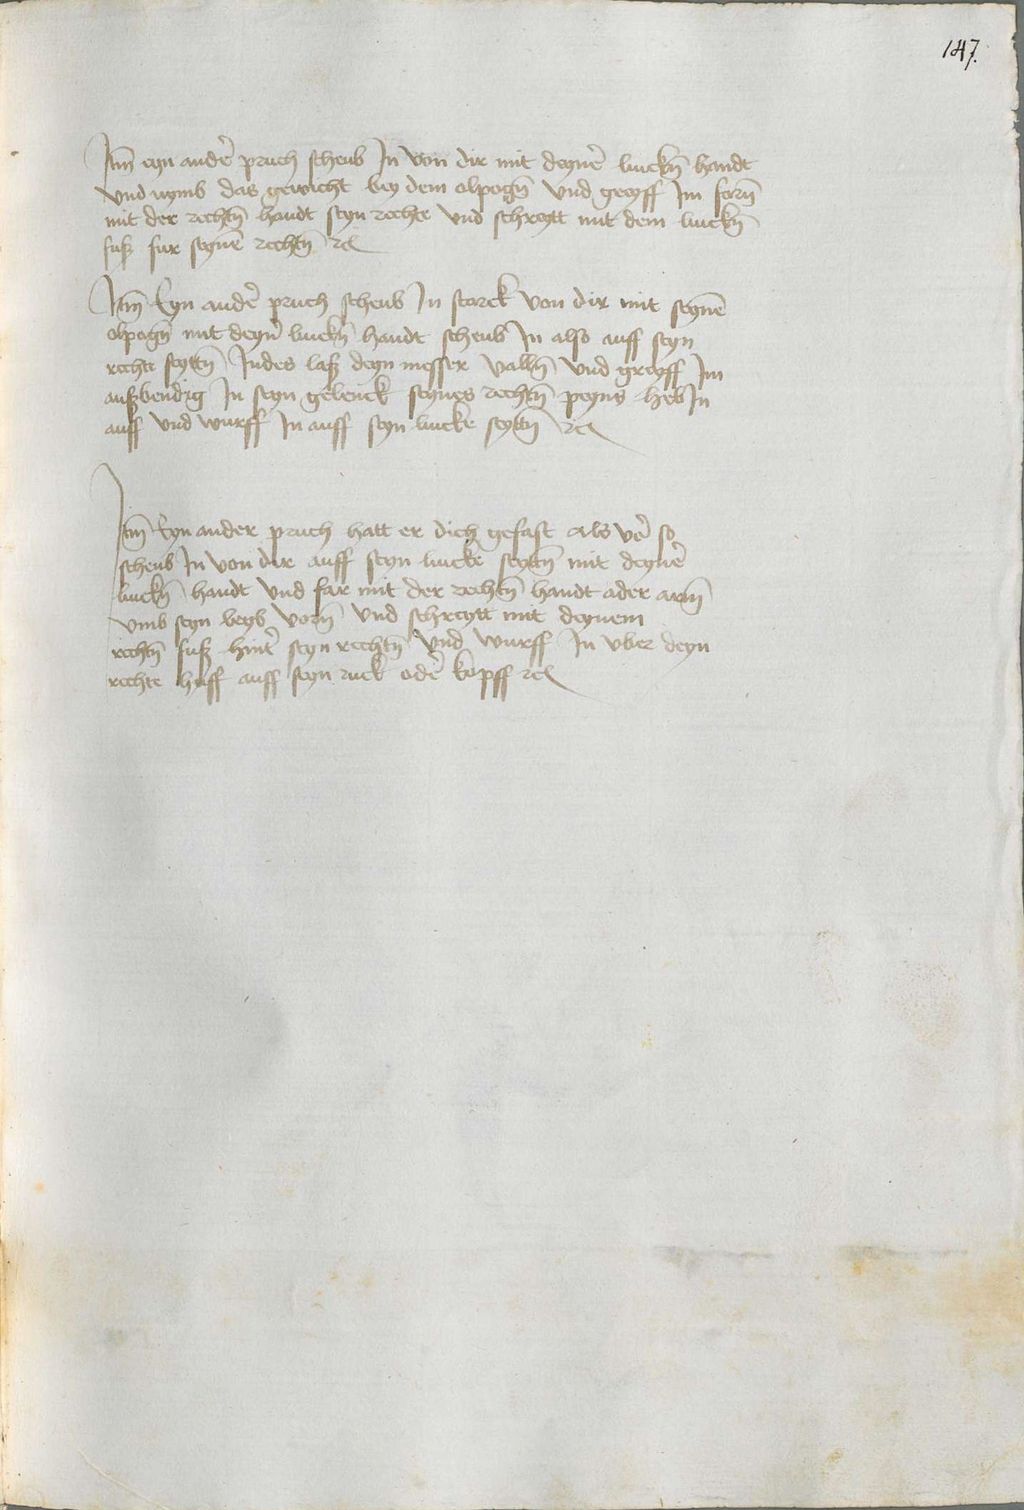 147.
Itm̄ eyn ander̄ pruch scheub In von dir mit deyner̄ lincken̄ handt
vnd nymb das gewicht bey dem elpogen̄ vnd greyff Im forn̄
mit der rechten̄ handt seyn rechte vnd schreytt mit dem lincken̄
fuß fur seynē rechten̄ rc
Itm̄ Eyn ander̄ pruch scheub In starck von dir mit seynē
elpogen̄ mit deyner̄ lincken̄ handt scheub In also auff seyn
rechte seytten̄ Indes laß deyn messer vallen̄ vnd greyff Im
außbendig In seyn gelenck seynes rechten̄ peyns heb In
auff vnd wurff In auff seyn lincke seytten̄ rc
Itm̄ Eyn ander pruch hatt er dich gefast als vor̄ so
scheub In von dir auff seyn lincke seytten̄ mit deyner̄
lincken̄ handt vnd far mit der rechten̄ handt ader arm̄
vmb seyn leyb vorn̄ vnd schreytt mit deynem
rechten̄ fuß hinter̄ seyn rechten̄ vnd wurff In vber deyn
rechte huff auff seyn ruck oder̄ kopff rc